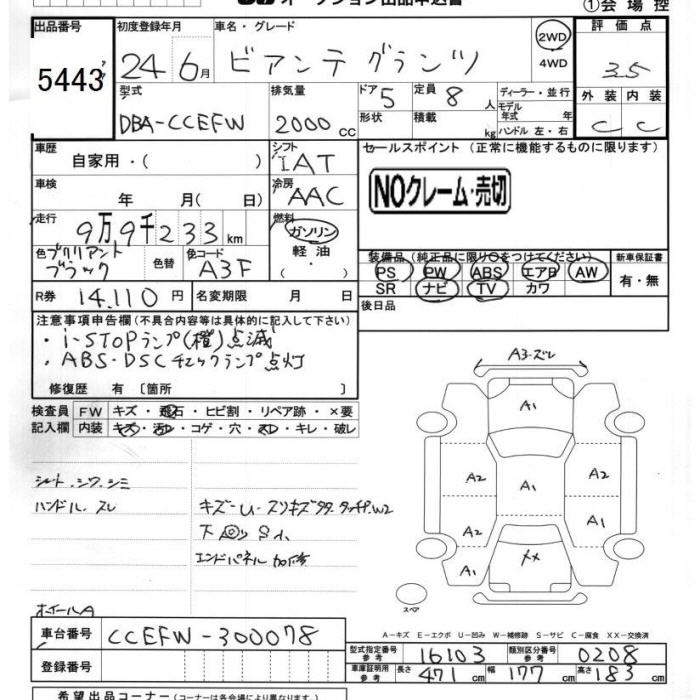 オークション出品申込書
①会場控
出品番号 初度登録年月 車名・グレード 2WD 4WD 評価点
5443 24年6月 ビアンテ グランツ 3.5
型式 排気量 ドア 5 定員 8人 ディーラー・並行 外装 内装
DBA-CCEFW 2000cc 形状 積載 kg モデル年式 年 ハンドル 左・右 C C
車歴 自家用・( ) シフト IAT セールスポイント (正常に機能するものに限ります)
車検 年 月( 日) 冷房 AAC NOクレーム・売切
走行 9万9千233km 燃料 ガソリン 軽油 ・( )
色 ブリリアントブラック 色替 色コード A3F
装備品 (純正品に限り○をつけてください) 新車保証書
PS PW ABS エアB AW 有・無
SR ナビ TV カワ
R券 14,110円 名変期限 月 日 後日品
注意事項申告欄 (不具合内容等は具体的に記入して下さい)
・i-STOPランプ(橙)点滅
・ABS・DSCチェックランプ点灯
修復歴 有 〔箇所 〕
検査員記入欄 FW キズ・飛石・ヒビ割・リペア跡・×要
内装 キズ・汚レ・コゲ・穴・スレ・キレ・破レ
シート、シワ、シミ
ハンドル、スレ
キズー U、スリキズ
下 S小
エンドパネル加修
ホイールA
A3・ズレ
A1
A2 A1 A2
A2 A1
A1 ××
スペア
A-キズ E-エクボ U-凹み W-補修跡 S-サビ C-腐食 XX-交換済
車台番号 CCEFW-300078
登録番号
型式指定番号 参考 16103 類別区分番号 参考 0208
車庫証明用 参考 長さ 471cm 幅 177cm 高さ 183cm
希望出品コーナー (コーナーは各会場により異なります。)